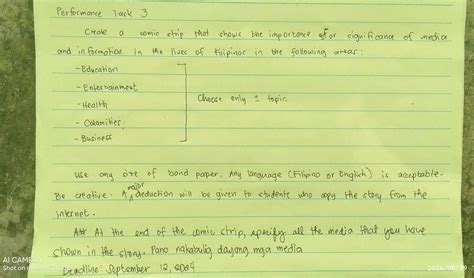 Performance Task 3
Create a comic strip that shows the importance or significance of media
and information in the lives of Filipinos in the following areas:
- Education
- Entertainment
- Health
- Calamities
- Business
Choose only 1 topic
Use any size of bond paper. Any language (Filipino or English) is acceptable.
Be creative. A major deduction will be given to students who copy the story from the
internet.
At the end of the comic strip, specify all the media that you have
shown in the story. Pano nakatulog dayong mga media
Deadline: September 12, 2024
AI CAMERA
Shot on
2024/08/29